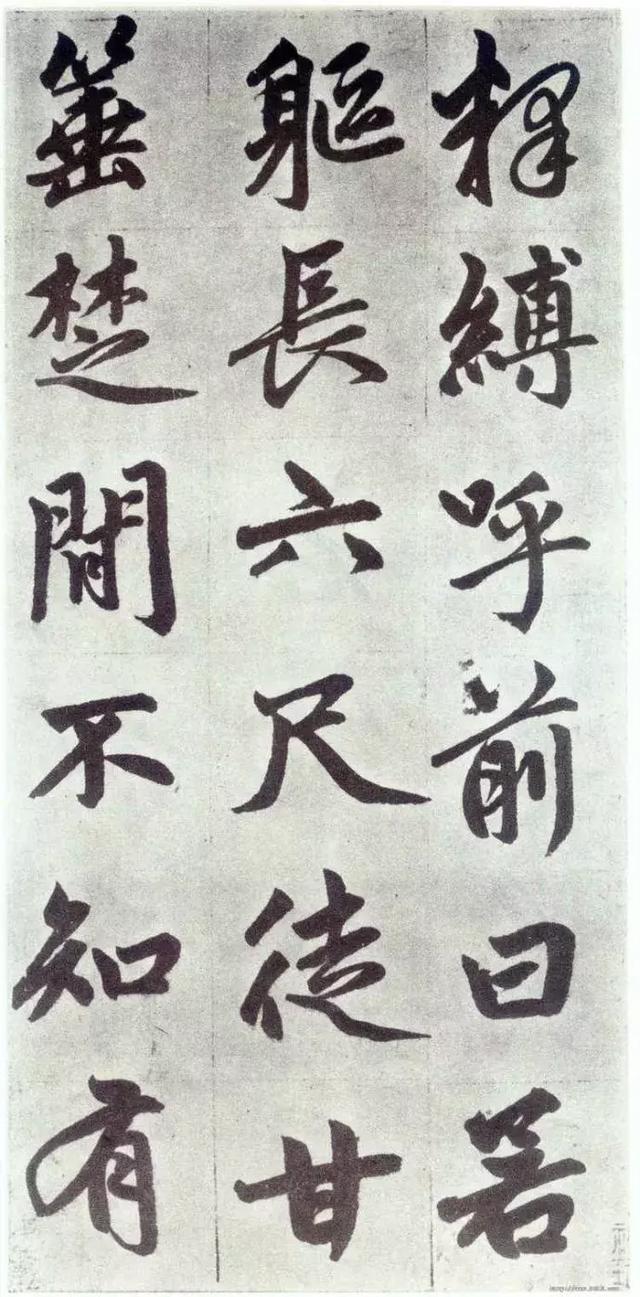 釋縛呼前曰若
軀長六尺徒甘
箠楚閒不知有